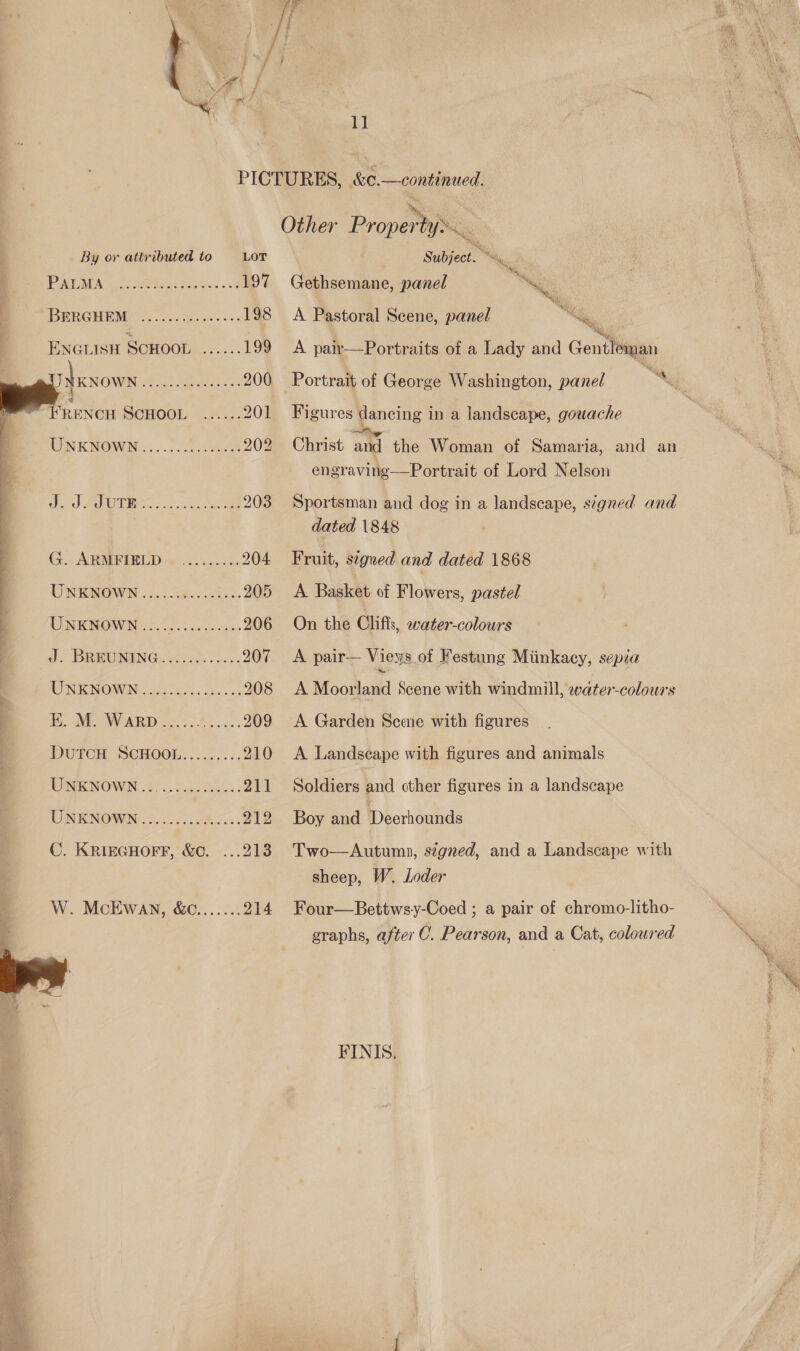 11
PICTURES, &c.—continued.
Other Property.
By or attributed to LOT Subject.
PALMA ..................197 Gethsemane, panel
BERGHEM ...............198 A Pastoral Scene, panel
ENGLISH SCHOOL ......199 A pair—Portraits of a Lady and Gentleman
UNKNOWN...............200 Portrait of George Washington, panel
FRENCH SCHOOL ......201 Figures dancing in a landscape, gouache
UNKNOWN...............202 Christ and the Woman of Samaria, and an
engraving—Portrait of Lord Nelson
J. J. JUTE...............203 Sportsman and dog in a landscape, signed and
dated 1848
G. ARMFIELD .........204 Fruit, signed and dated 1868
UNKNOWN...............205 A Basket of Flowers, pastel
UNKNOWN...............206 On the Cliffs, water-colours
J. BREUNING............207 A pair—Views of Festung Münkacy, sepia
UNKNOWN...............208 A Moorland Scene with windmill, water-colours
E. M. WARD............209 A Garden Scene with figures
DUTCH SCHOOL.........210 A Landscape with figures and animals
UNKNOWN...............211 Soldiers and other figures in a landscape
UNKNOWN...............212 Boy and Deerhounds
C. KRIEGHOFF, &C. ...213 Two—Autumn, signed, and a Landscape with
sheep, W. Loder
W. MCEWAN, &C.......214 Four—Bettws-y-Coed ; a pair of chromo-litho-
graphs, after C. Pearson, and a Cat, coloured
FINIS.